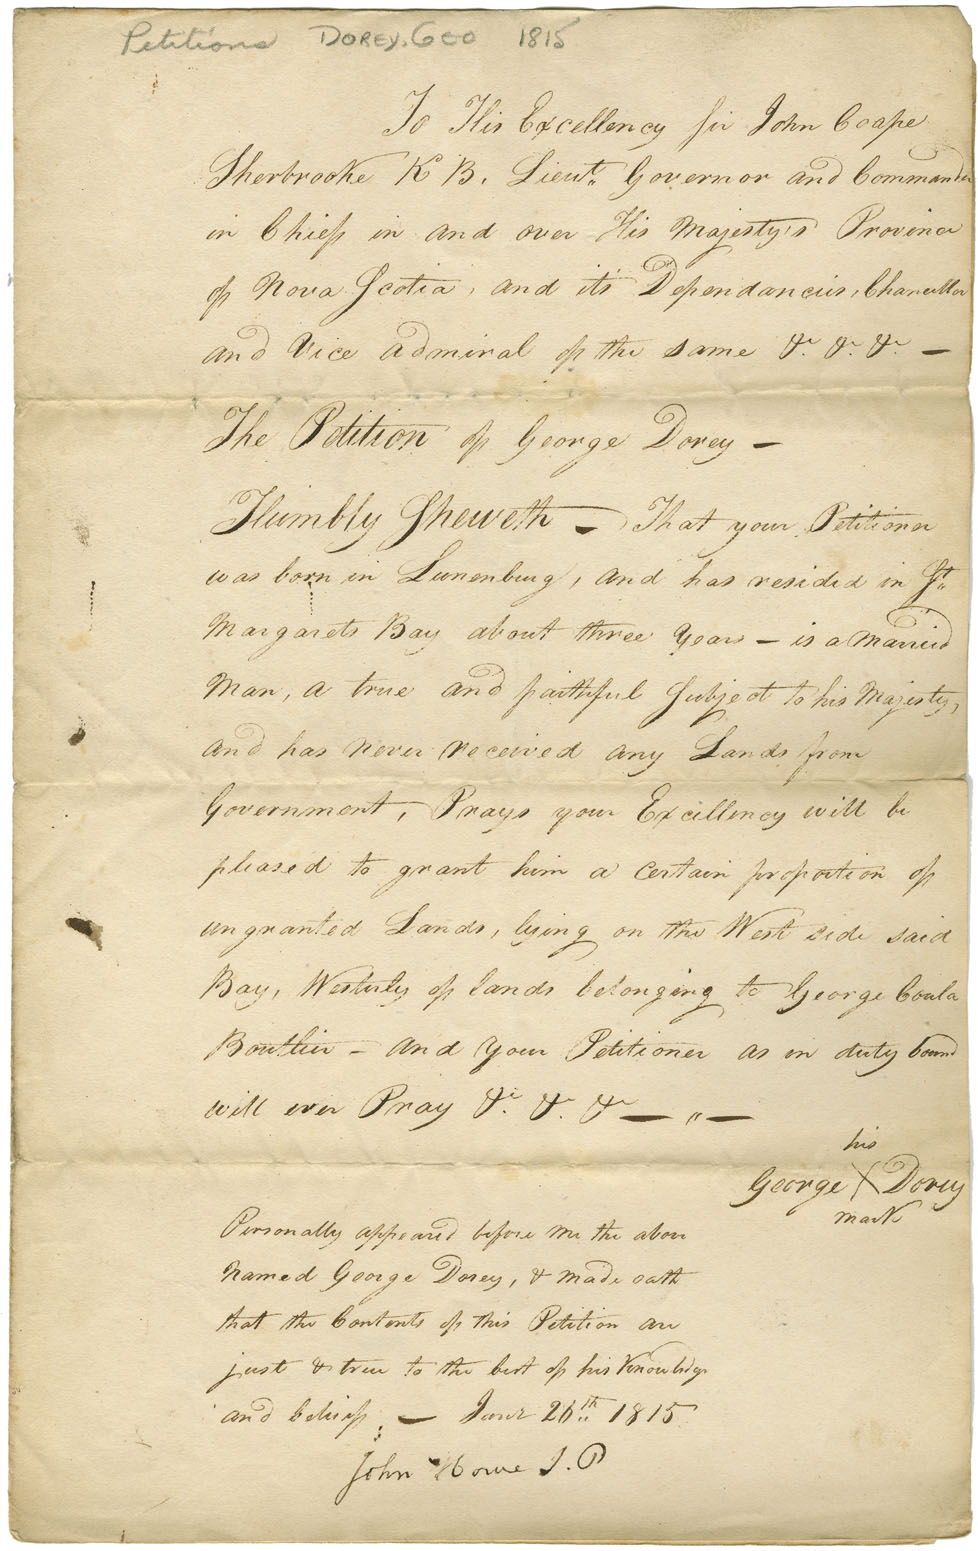 Petitions DOREY, GEO 1815
To His Excellency Sir John Coape
Sherbrooke K B, Lieut. Governor and Commander
in Chief in and over His Majesty's Province
of Nova Scotia, and its Dependancies, Chancellor
and Vice Admiral of the same &c. &c. &c. —
The Petition of George Dorey —
Humbly Sheweth — That your Petitioner
was born in Lunenburg, and has resided in St.
Margarets Bay about three Years — is a married
Man, a true and faithful Subject to his Majesty,
and has never received any Lands from
Government, Prays your Excellency will be
pleased to grant him a certain proportion of
ungranted Lands, lying on the West side said
Bay, Westerly of lands belonging to George
Boutlier — And Your Petitioner as in duty bound
will ever Pray &c. &c. &c — „ —
his
George X Dorey
mark
Personally appeared before me the above
Named George Dorey, & made oath
that the Contents of this Petition are
just & true to the best of his Knowledge
and belief; — June 26th 1815
John Howe J. P